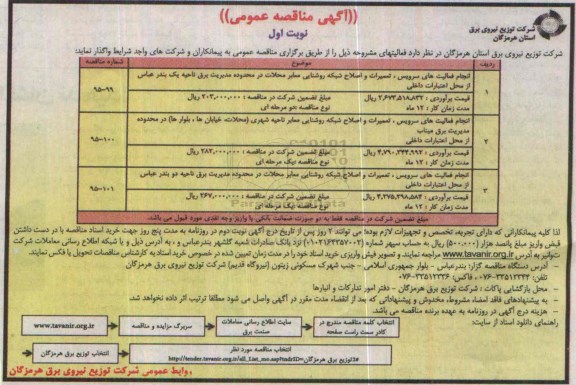 ((آگهی مناقصه عمومی))
نوبت اول
شرکت توزیع نیروی برق
استان هرمزگان
شرکت توزیع نیروی برق استان هرمزگان در نظر دارد فعالیتهای مشروحه ذیل را از طریق برگزاری مناقصه عمومی به پیمانکاران و شرکت های واجد شرایط واگذار نماید:
ردیف موضوع شماره مناقصه
۱ انجام فعالیت های سرویس ، تعمیرات و اصلاح شبکه روشنایی معابر محلات در محدوده مدیریت برق ناحیه یک بندر عباس ۹۵-۹۹
از محل اعتبارات داخلی
قیمت برآوردی : ۲,۶۷۳,۵۱۸,۸۳۲ ریال مبلغ تضمین شرکت در مناقصه : ۲۰۳,۰۰۰,۰۰۰ ریال
مدت زمان کار : ۱۲ ماه نوع مناقصه :دو مرحله ای
۲ انجام فعالیت های سرویس ، تعمیرات و اصلاح شبکه روشنایی معابر ناحیه شهری (محلات، خیابان ها ، بلوار ها) در محدوده ۹۵-۱۰۰
مدیریت برق میناب
از محل اعتبارات داخلی
قیمت برآوردی : ۴,۷۹۰,۳۴۴,۹۹۲ ریال مبلغ تضمین شرکت در مناقصه : ۲۸۲,۰۰۰,۰۰۰ ریال
مدت زمان کار : ۱۲ ماه نوع مناقصه :یک مرحله ای
۳ انجام فعالیت های سرویس ، تعمیرات و اصلاح شبکه روشنایی معابر محلات در محدوده مدیریت برق ناحیه دو بندر عباس ۹۵-۱۰۱
از محل اعتبارات داخلی
قیمت برآوردی : ۴,۲۷۵,۲۹۸,۵۸۴ ریال مبلغ تضمین شرکت در مناقصه : ۲۶۷,۰۰۰,۰۰۰ ریال
مدت زمان کار : ۱۲ ماه نوع مناقصه :یک مرحله ای
مبلغ تضمین شرکت در مناقصه فقط به دو صورت ضمانت بانکی یا واریز وجه نقدی مورد قبول می باشد.
لذا کلیه پیمانکارانی که دارای تجربه، تخصص و تجهیزات لازم بوده می توانند ۲ روز پس از تاریخ درج آگهی نوبت دوم در روزنامه به مدت پنج روز جهت خرید اسناد مناقصه با در دست داشتن
قبض واریز مبلغ پانصد هزار (۵۰۰,۰۰۰) ریال به حساب سپهر شماره (۰۲۱۶۴۳۵۷۰۰۲-۷۱) نزد بانک صادرات شعبه گلشهر بندرعباس و ، به آدرس ذیل و یا شبکه اطلاع رسانی معاملات شرکت
توانیر به آدرس www.tavanir.org.ir مراجعه نمایند، و تصویر فیش واریزی خرید اسناد خود را در مدت زمان تعیین شده در خصوص خرید اسناد به کارشناس مناقصات تحویل یا فکس نمایند.
- آدرس دستگاه مناقصه گزار: بندرعباس - بلوار جمهوری اسلامی - جنب شهرک مسکونی زیتون (نیروگاه قدیم) شرکت توزیع نیروی برق هرمزگان
تلفن: ۳۳۵۱۲۲۴۴-۰۷۶ ، فاکس: ۳۳۵۱۲۳۲۶-۰۷۶
- محل بازگشایی پاکات : شرکت توزیع برق هرمزگان - دفتر امور تدارکات و انبارها
- به پیشنهادهای فاقد امضاء مشروط، مخدوش و پیشنهاداتی که بعد از انقضاء مدت مقرر در آگهی واصل می شود مطلقا ترتیب اثر داده نخواهد شد.
- هزینه درج آگهی در روزنامه به عهده برنده مناقصه می باشد.
راهنمای دانلود اسناد از سایت:
www.tavanir.org.ir سربرگ مزایده و مناقصه سایت اطلاع رسانی معاملات صنعت برق انتخاب کلمه مناقصه مندرج در کادر سمت راست صفحه
انتخاب توزیع برق هرمزگان انتخاب مناقصه مورد نظر
روابط عمومی شرکت توزیع نیروی برق هرمزگان